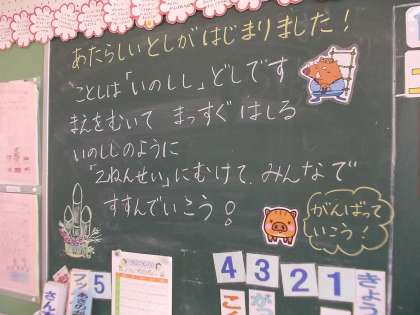 あたらしいとしがはじまりました！
ことしは「いのしし」どしです
まえをむいて まっすぐ はしる
いのししのように
「2ねんせい」にむけて、みんなで
すすんでいこう！
がんばって
いこう！
5
4
3
2
1
きょう